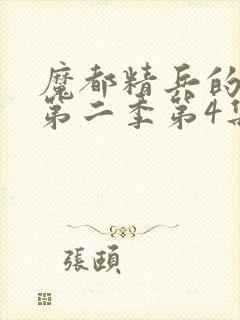 魔都精兵的
第二季第4集
張頤